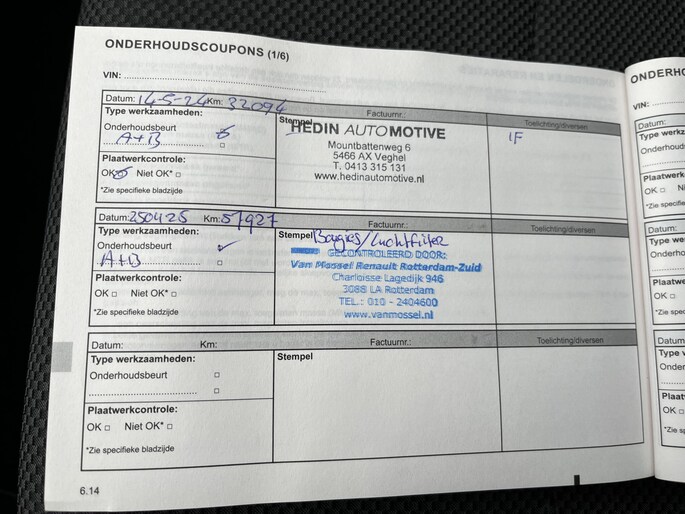 ONDERHOUDSCOUPONS (1/6)
VIN:
Datum: 14-5-24 Km: 32094 Factuurnr.: Toelichting/diversen
Type werkzaamheden:
Onderhoudsbeurt
A+B
Plaatwerkcontrole:
OK Niet OK*
*Zie specifieke bladzijde
Stempel
HEDIN AUTOMOTIVE
Mountbattenweg 6
5466 AX Veghel
T. 0413 315 131
www.hedinautomotive.nl
Datum: 250425 Km: 57927 Factuurnr.: Toelichting/diversen
Type werkzaamheden:
Onderhoudsbeurt
A+B
Plaatwerkcontrole:
OK Niet OK*
*Zie specifieke bladzijde
Stempel Bougies/Luchtfilter
GECONTROLEERD DOOR:
Van Mossel Renault Rotterdam-Zuid
Charloisse Lagedijk 946
3088 LA Rotterdam
TEL.: 010 - 2404600
www.vanmossel.nl
Datum: Km: Factuurnr.: Toelichting/diversen
Type werkzaamheden:
Onderhoudsbeurt
Plaatwerkcontrole:
OK Niet OK*
*Zie specifieke bladzijde
Stempel
6.14
VIN:
Datum:
OK
OK
Datum
OK